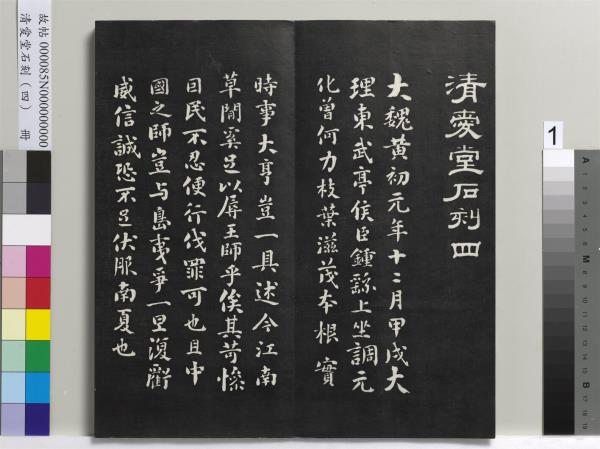 清愛堂石刻四
大魏黃初元年十二月甲戌大
理東武亭侯臣鍾繇上坐調元
化曾何力枝葉滋茂本根實
時事大亨豈一具述今江南
草閒奚足以辱王師乎俟其苛慘
曰民不忍便行伐罪可也且中
國之師豈与島夷爭一旦復釁
威信誠恐不足伏服南夏也
故帖 000085N000000000
清愛堂石刻(四) 冊
1
A
1
2
3
4
5
6
M
8
9
10
11
12
13
14
15
B
17
18
19